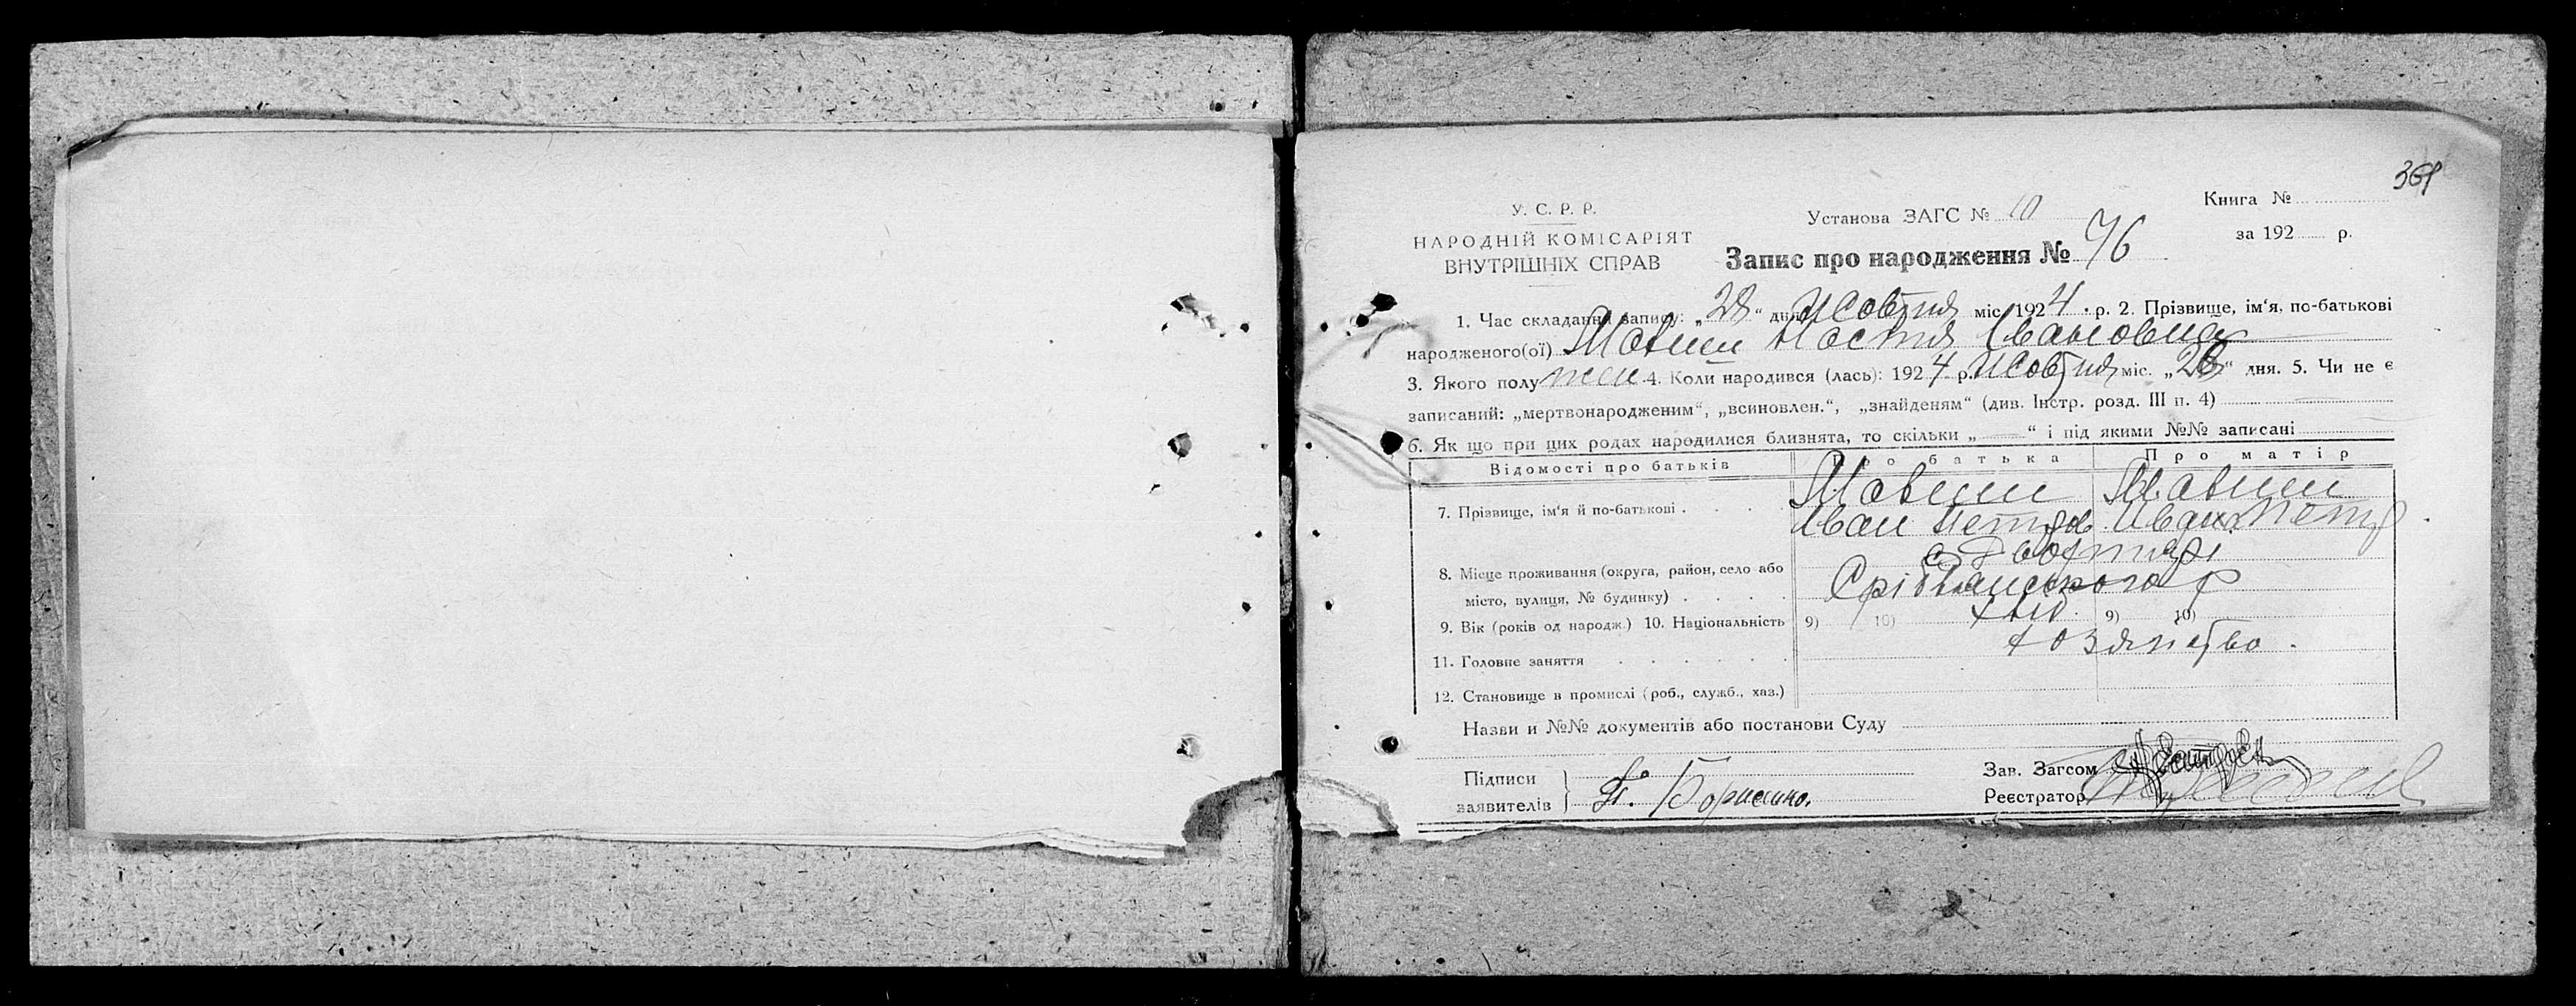 369
У. С. Р. Р.
НАРОДНІЙ КОМІСАРІЯТ
ВНУТРІШНІХ СПРАВ
Установа ЗАГС № 10
Книга №
за 192 р.
Запис про народження № 76
1. Час складання запису: „28“ дня Жовтня міс. 1924 р. 2. Прізвище, ім‘я, по-батькові
народженого(ої) Мовчан Настя Івановна
3. Якого полу жен 4. Коли народився (лась): 1924 р. Жовтня міс. „28“ дня. 5. Чи не є
записаний: „мертвонародженим“, „всиновлен.“, „знайденям“ (див. Інстр. розд. III п. 4)
6. Як що при цих родах народилися близнята, то скільки „——“ і під якими №№ записані
Відомості про батьків Про батька Про матір
7. Прізвище, ім‘я й по-батькові
Іван Петров
8. Місце проживання (округа, район, село або
місто, вулиця, № будинку) Срібнянського р
9. Вік (років од народж.) 10. Національність 9) 10) 9) 10)
11. Головне заняття хозяйство
12. Становище в промислі (роб., служб., хаз.)
Назви и №№ документів або постанови Суду
Підписи
заявителів
Борисенко.
Зав. Загсом
Реєстратор